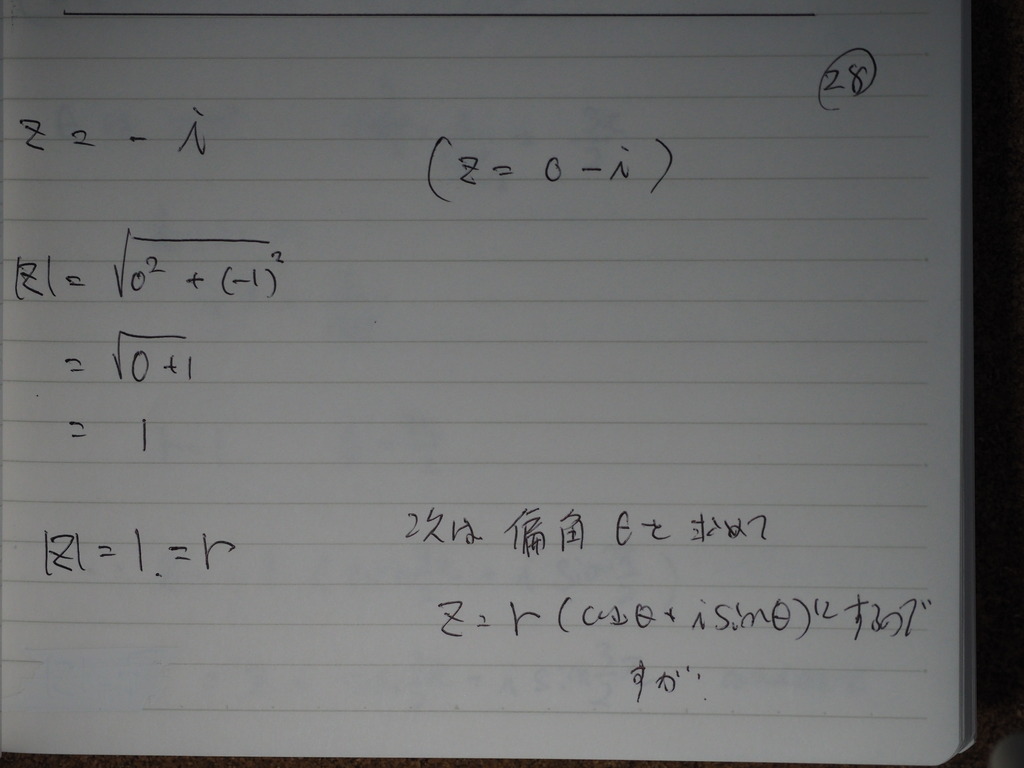 28
z = - i
(z = 0 - i)
|z| = √0² + (-1)²
= √0+1
= 1
|z| = 1. = r
次は 偏角 θを 求めて
z = r (cosθ + i sinθ)にするので
すが..